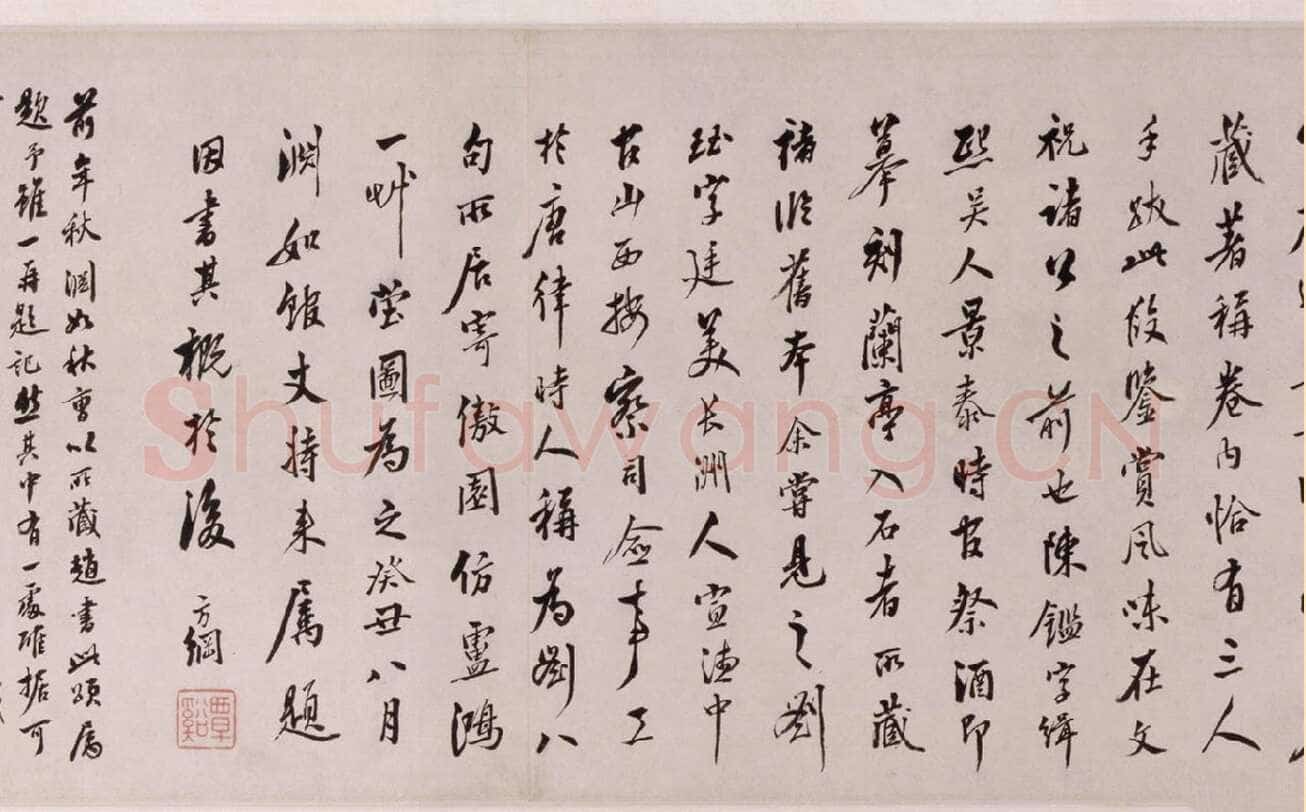 藏著稱卷內恰有三人
手跋此段鑒賞風味在文
祝諸公之前也陳鑑字緝
熙吳人景泰時官祭酒即
摹刻蘭亭入石者所藏
褚臨舊本余嘗見之劉
珏字廷美長洲人宣德中
官山西按察司僉事工
於唐律時人稱為劉八
句所居寄傲園仿盧鴻
一草堂圖為之癸丑八月
淵如館丈持來屬題
因書其概於後 方綱
覃谿
前年秋淵如秋曹以所藏趙書此蹟屬
題予雖一再題記然其中有一處確据可
Shufawang.CN